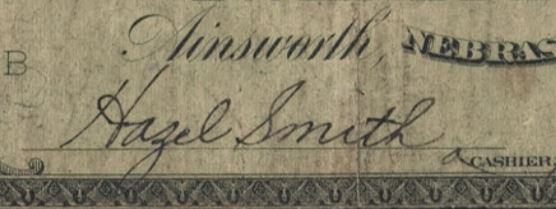 Ainsworth, NEBRAS
B
Hazel Smith
a CASHIER.